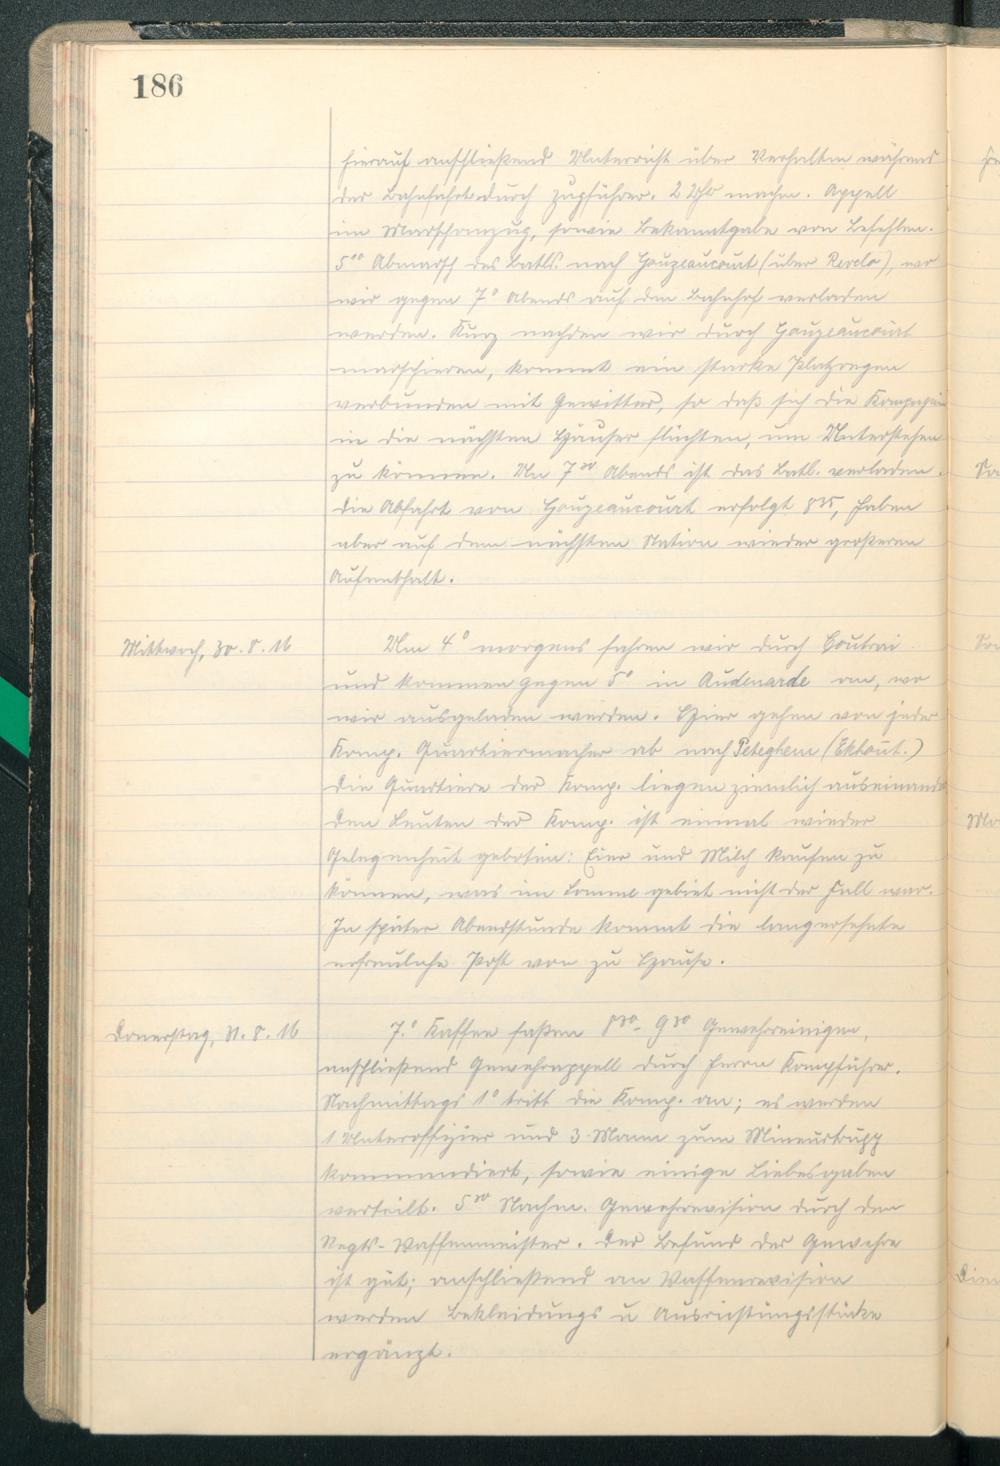 186
hierauf anschließend Unterricht über Verhalten während
der Bahnfahrt durch Zugführer. 2 Uhr machm. Appell
im Marschanzug, sowie Bekanntgabe von Befehlen.
5⁰⁰ Abmarsch des Batls. nach Gouzeaucourt (über Revelo), wo
wir gegen 7⁰ Abends auf dem Bahnhof verladen
werden. Kurz nachdem wir durch Gouzeaucourt
marschieren, kommt ein starke Platzregen
verbunden mit Gewitter, so daß sich die Kompagnie
in die nächsten Häuser flüchten, um Unterstehen
zu können. Um 7³⁰ Abends ist das Batl. verladen.
Die Abfahrt von Gouzeaucourt erfolgt 8³⁵, haben
aber auf dem nächsten Station wieder größeren
Aufenthalt.
Mittwoch, 30.8.16
Um 4⁰ morgens fahren wir durch Coutrai
und kommen gegen 5⁰ in Audenarde an, wo
wir ausgeladen werden. Hier gehen von jeder
Komp. Quartiermacher ab nach Peteghem (Ekhout.)
Die Quartiere der Komp. liegen ziemlich auseinander
Den Leuten der Komp. ist einmal wieder
Gelegenheit geboten: Eier und Milch kaufen zu
können, was im Sommegebiet nicht der Fall war.
In später Abendstunde kommt die langersehnte
erfreuliche Post von zu Hause.
Donerstag, 31.8.16
7.⁰ Kaffee faßen 8³⁰- 9³⁰ Gewehrreinigen,
anschließend Gewehrappell durch Herrn Kompführer.
Nachmittags 1⁰ tritt die Komp. an; es werden
1 Unteroffizier und 3 Mann zum Mineurtrupp
kommandiert, sowie einige Liebesgaben
verteilt. 5³⁰ Nachm. Gewehrrevision durch den
Regts-Waffenmeister. Der Befund der Gewehre
ist gut; anschließend an Waffenrevision
werden Bekleidungs u Ausrüstungsstücke
ergänzt.